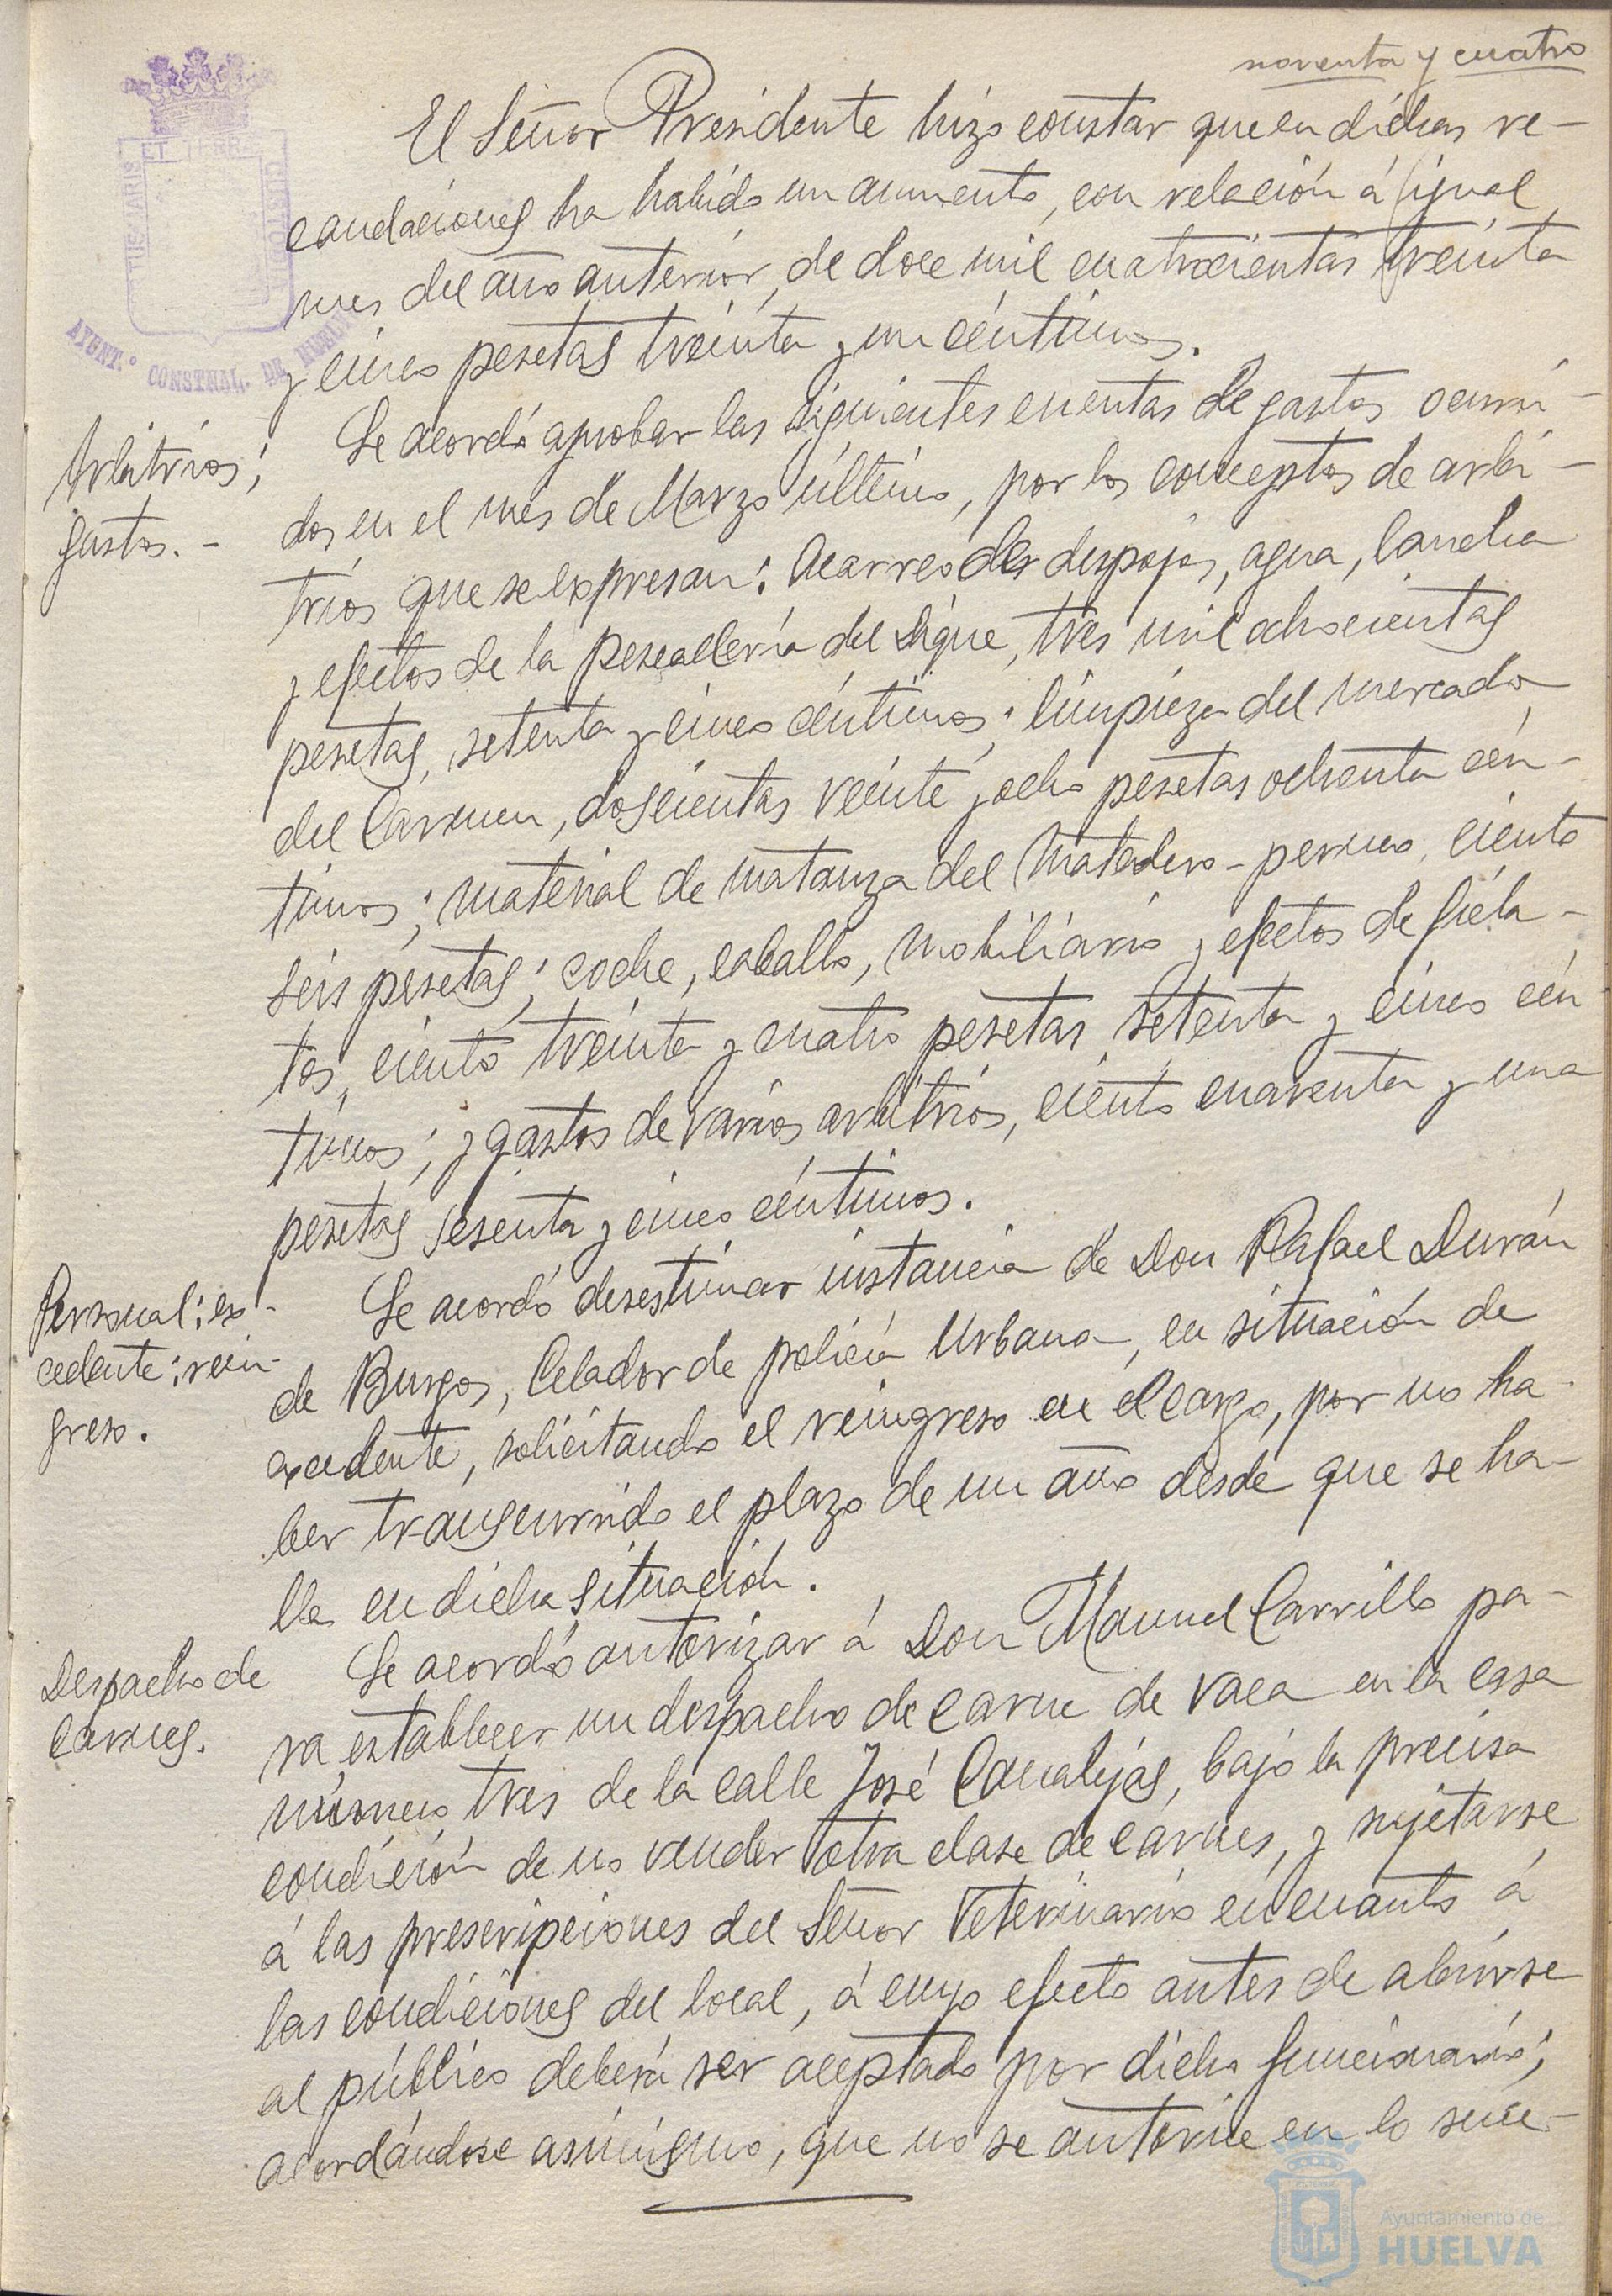 noventa y cuatro
El Señor Presidente hizo constar que en dichas re-
caudaciones ha habido un aumento, con relación á igual
mes del año anterior, de doce mil cuatrocientas treinta
y cinco pesetas treinta y un céntimos.
Arbitrios;
gastos. -
Se acordó aprobar las siguientes cuentas de gastos ocurri-
dos en el mes de Marzo último, por los conceptos de arbi-
trios que se expresan: Acarreo de despojos, agua, lancha
y efectos de la pescadería del Dique, tres mil ochocientas
pesetas, setenta y cinco céntimos; limpieza del mercado
del Carmen, doscientas veinte y ocho pesetas ochenta cén-
timos; material de matanza del Matadero-perneo, ciento
seis pesetas; coche, caballo, mobiliario y efectos de fiela-
tos, ciento treinta y cuatro pesetas setenta y cinco cén
timos; y gastos de varios arbitrios, ciento cuarenta y una
pesetas sesenta y cinco céntimos.
Personal: ex-
cedente: rein-
greso.
Se acordó desestimar instancia de Don Rafael Durán
de Burgos, Celador de policía Urbana, en situación de
excedente, solicitando el reingreso en el cargo, por no ha-
ber transcurrido el plazo de un año desde que se ha-
lla en dicha situación.
Despacho de
carnes.
Se acordó autorizar á Don Manuel Carrillo pa-
ra establecer un despacho de carne de vaca en la casa
número tres de la calle José Canalejas, bajo la precisa
condición de no vender otra clase de carnes, y sujetarse
á las prescripciones del Señor Veterinario en cuanto á
las condiciones del local, á cuyo efecto antes de abrirse
al público deberá ser aceptado por dicho funcionario;
acordándose asímismo, que no se autorice en lo suce-
ET TERRÆ
CUSTODIA
TUS MARIS
AYUNT.º CONSTNAL. DE HUELVA
Ayuntamiento de
HUELVA